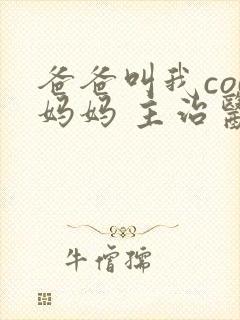 爸爸叫我co
妈妈 主治
牛僧孺